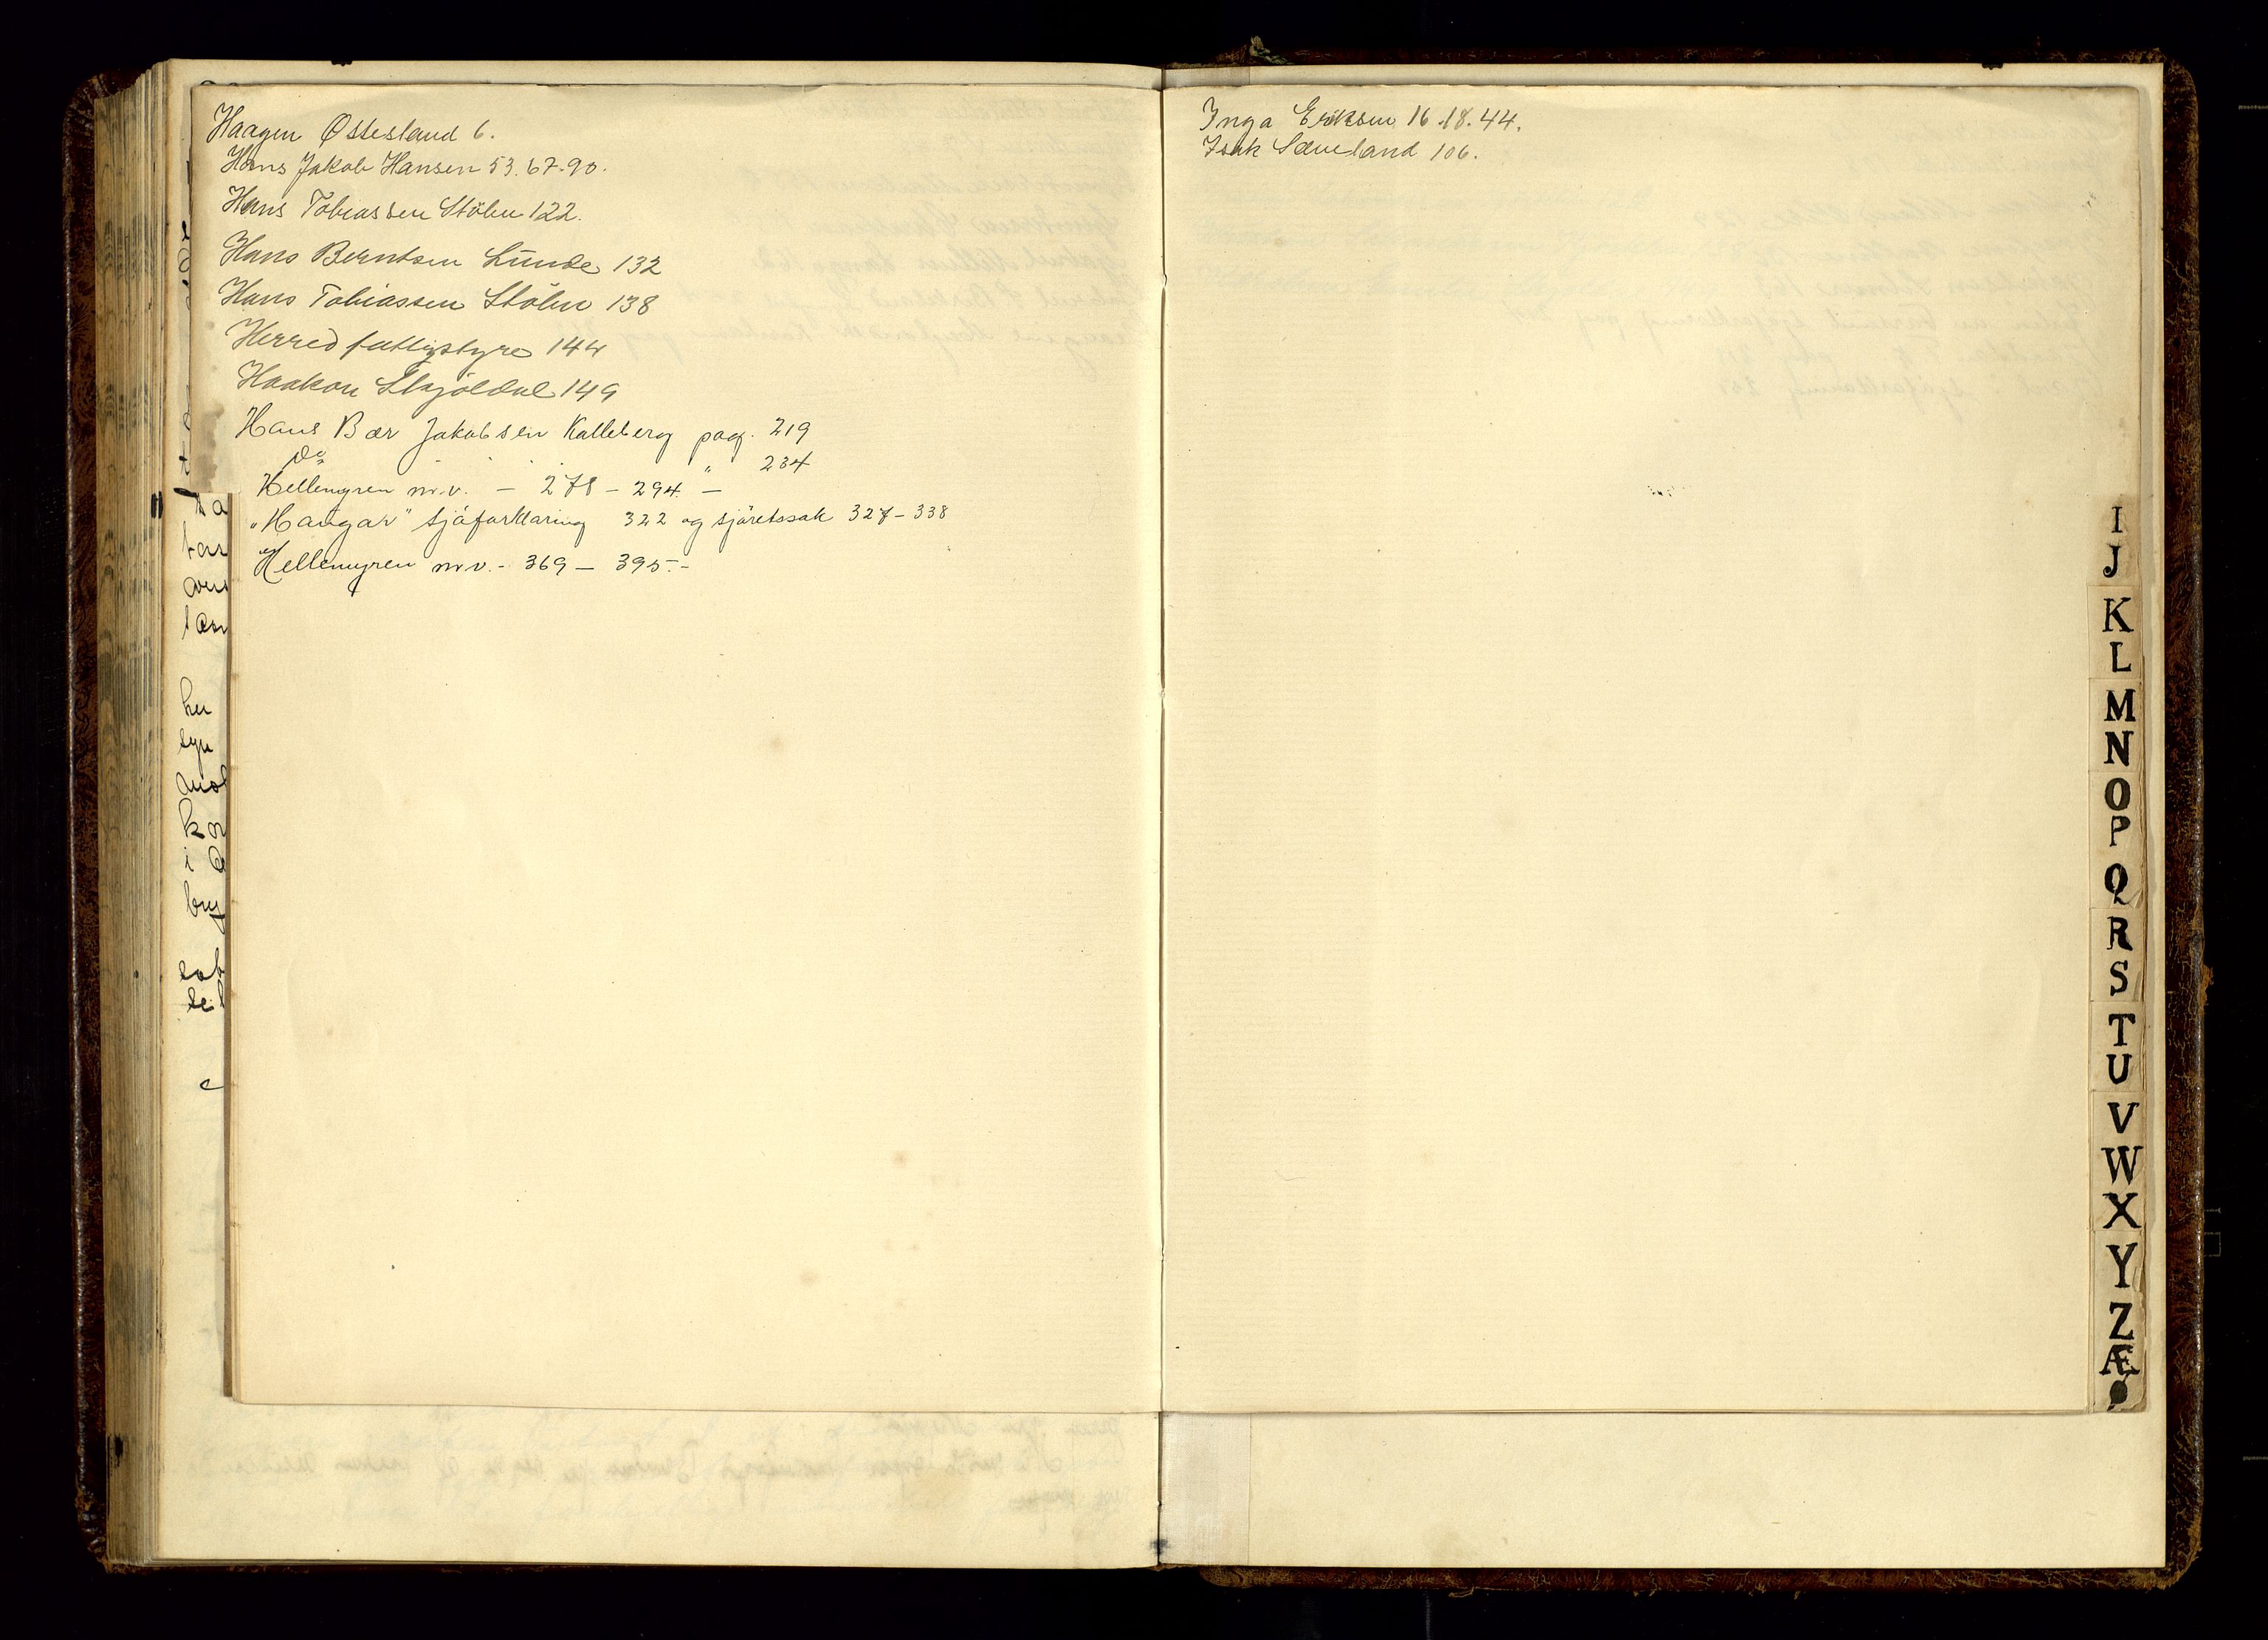 Haagen Øttesland 6.
Hans Jakob Hansen 53. 67. 90.
Hans Tobiassen Stölen 122.
Hans Berntsen Lunde 132
Hans Tobiassen Stölen 138
Herred fattigstyre 144
Haakon Skjöldal 149
Hans Bær Jakobsen Kalleberg pag. 219
Do " 234
Hellemyren m.v. – 278 – 294 –
"Haugar" sjöforklaring 322 og sjöretssak 327–338
Hellemyren m.v. - 369 – 395.-
ta
læn
hu
i
c
Inga Eriksen 16.18.44.
Isak Sæveland 106.
I
J
K
L
M
N
O
P
Q
R
S
T
U
V
W
X
Y
Z
Æ